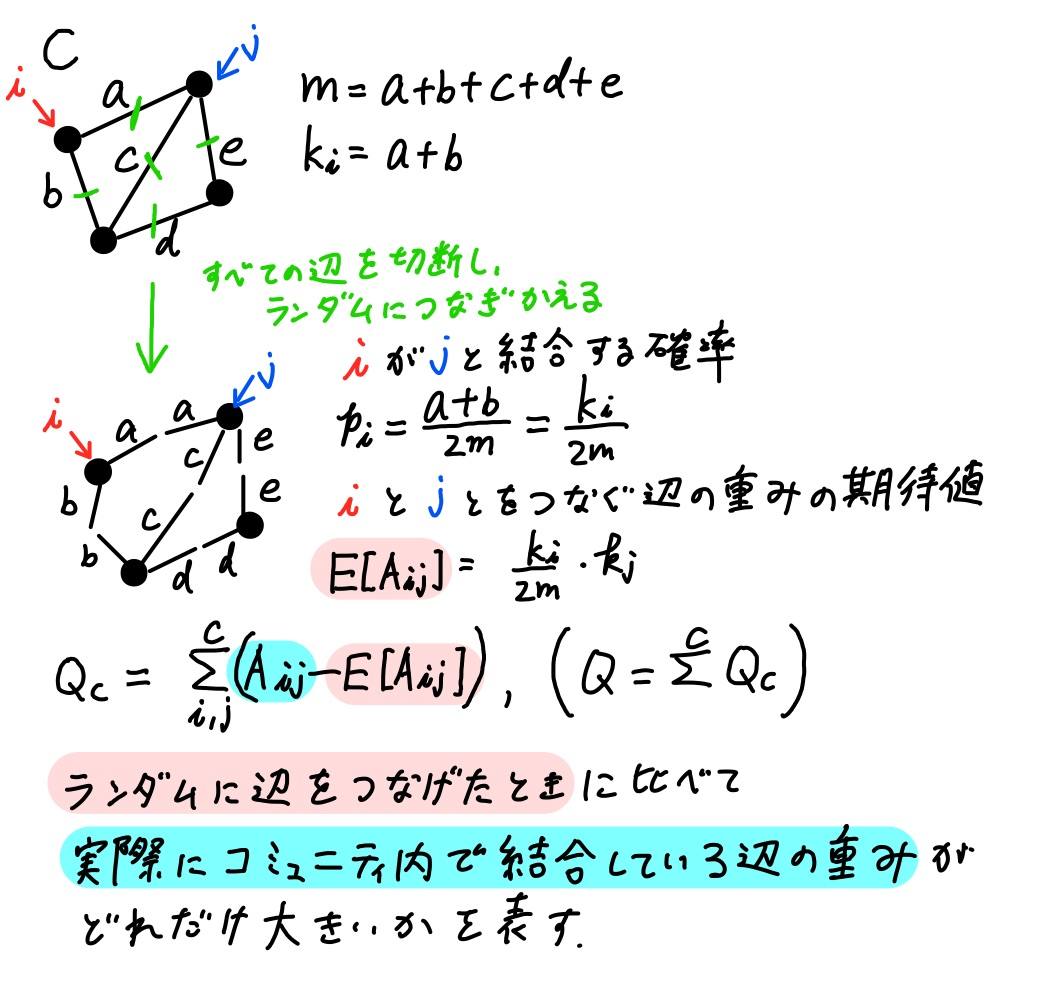 C
i
j
a
b
c
d
e
m = a+b+c+d+e
k_i = a+b
すべての辺を切断し、
ランダムにつなぎかえる
iがjと結合する確率
p_i = (a+b)/2m = k_i/2m
iとjとをつなぐ辺の重みの期待値
E[A_ij] = k_i/2m · k_j
i
j
a
a
b
b
c
c
d
d
e
e
Q_c = Σ_{i,j}^{C} (A_ij − E[A_ij]), (Q = Σ^{C} Q_c)
ランダムに辺をつなげたときに比べて
実際にコミュニティ内で結合している辺の重みが
どれだけ大きいかを表す.